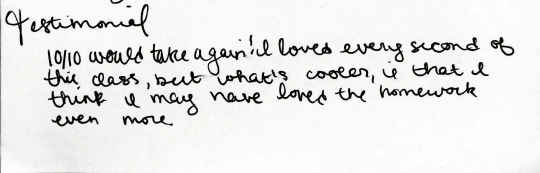 Testimonial
10/10 would take again! I loved every second of
this class, but what's cooler, is that I
think I may have loved the homework
even more